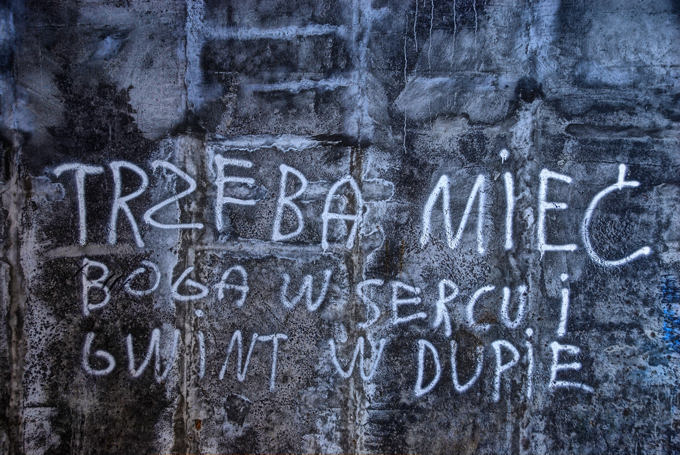 TRZEBA MIEĆ
BOGA W SERCU i
GWiNT W DUPiE